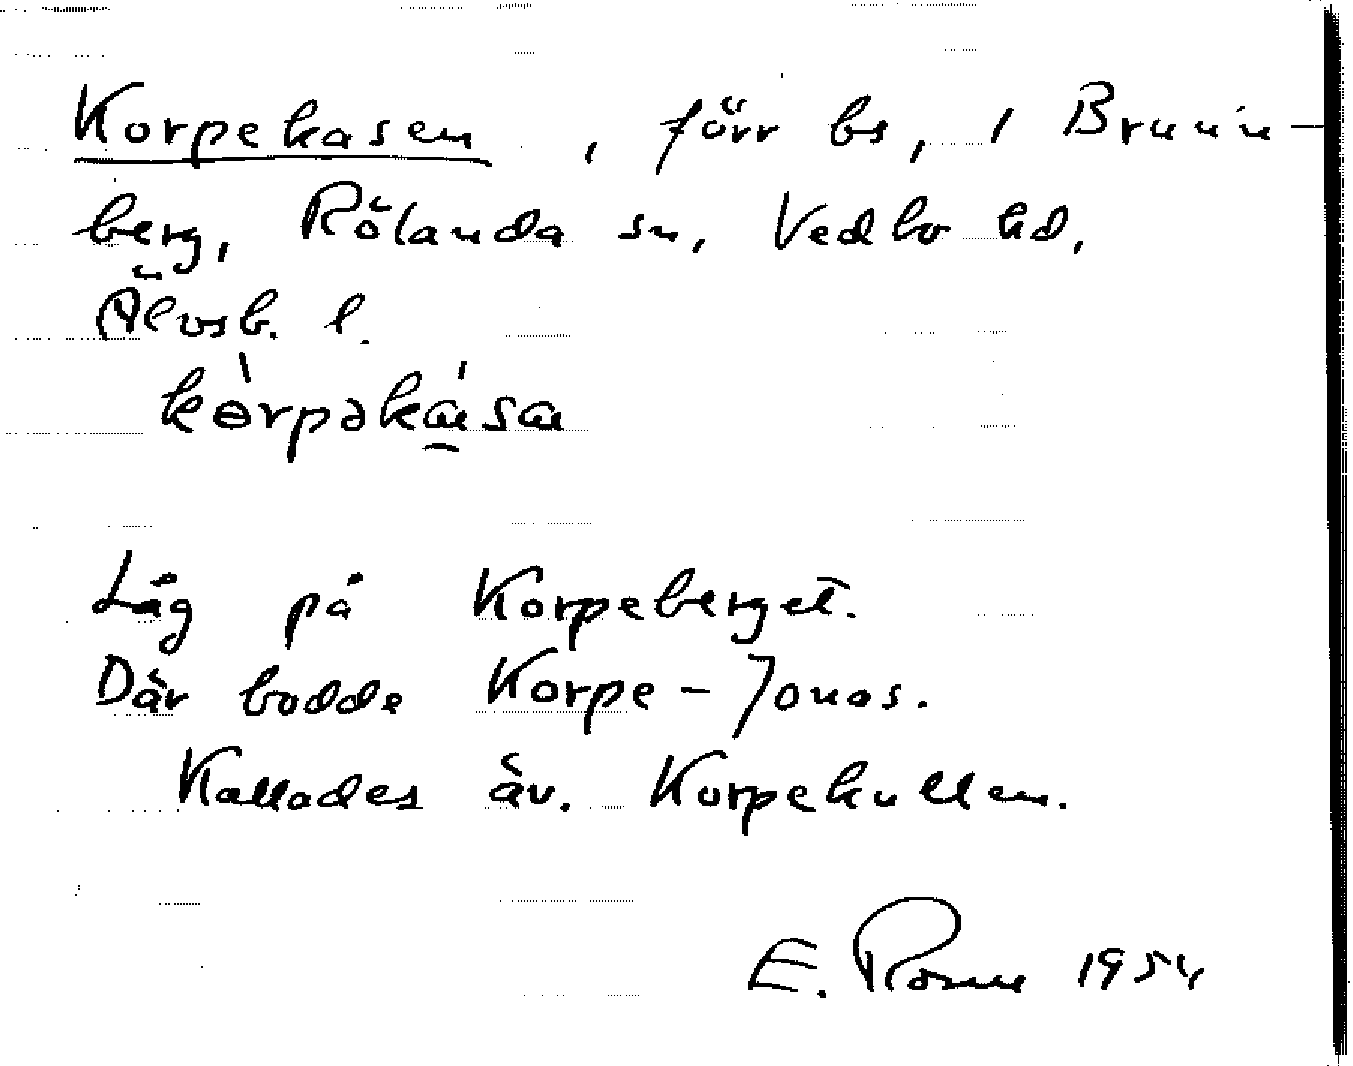 Korpekasen, förr bs, i Brunn-
berg, Rölanda sn, Vedbo hd,
Älvsb. l.
kòrpəkása
Låg på Korpeberget.
Där bodde Korpe-Jonas.
Kallades äv. Korpekullen.
E. 1954